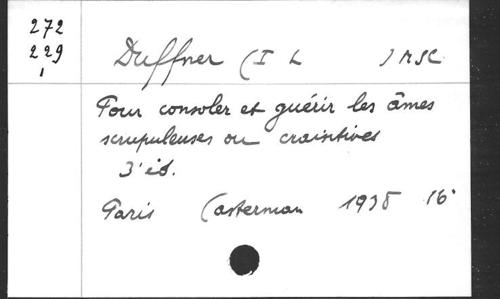 272
229
1
Duffner (I L ) MSC
Pour consoler et guérir les âmes
scrupuleuses ou craintives
3' éd.
Paris Casterman 1938 16°